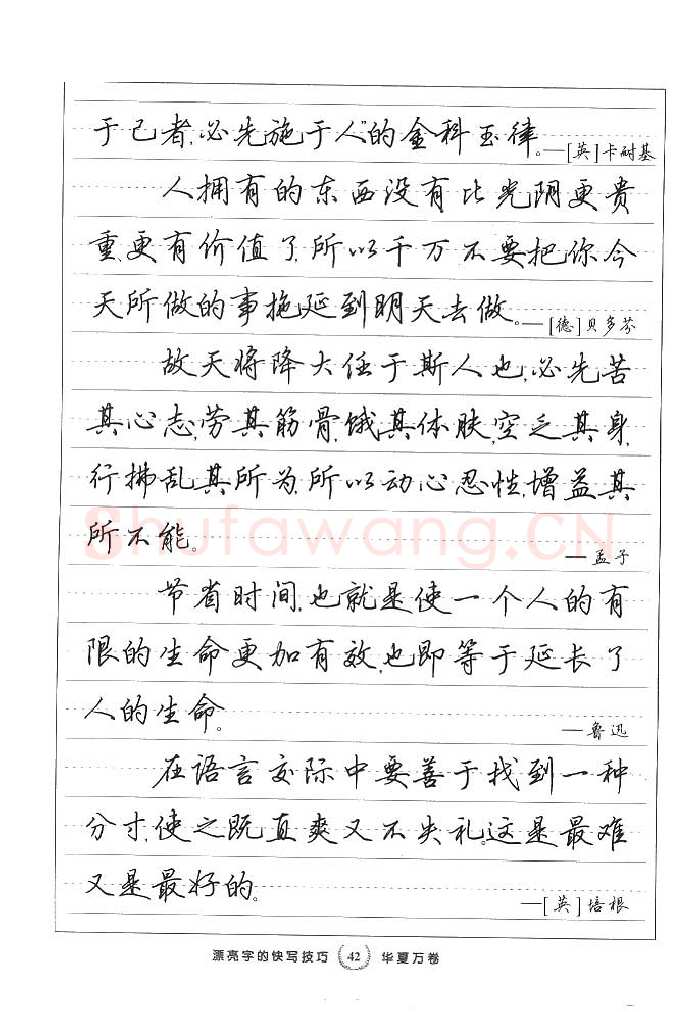 于己者,必先施于人”的金科玉律。—[英]卡耐基
人拥有的东西没有比光阴更贵
重、更有价值了,所以千万不要把你今
天所做的事拖延到明天去做。—[德]贝多芬
故天将降大任于斯人也,必先苦
其心志,劳其筋骨,饿其体肤,空乏其身,
行拂乱其所为,所以动心忍性,增益其
所不能。
—孟子
节省时间,也就是使一个人的有
限的生命更加有效,也即等于延长了
人的生命。
—鲁迅
在语言交际中要善于找到一种
分寸,使之既直爽又不失礼。这是最难
又是最好的。
—[英]培根
漂亮字的快写技巧 42 华夏万卷
Shufawang.CN